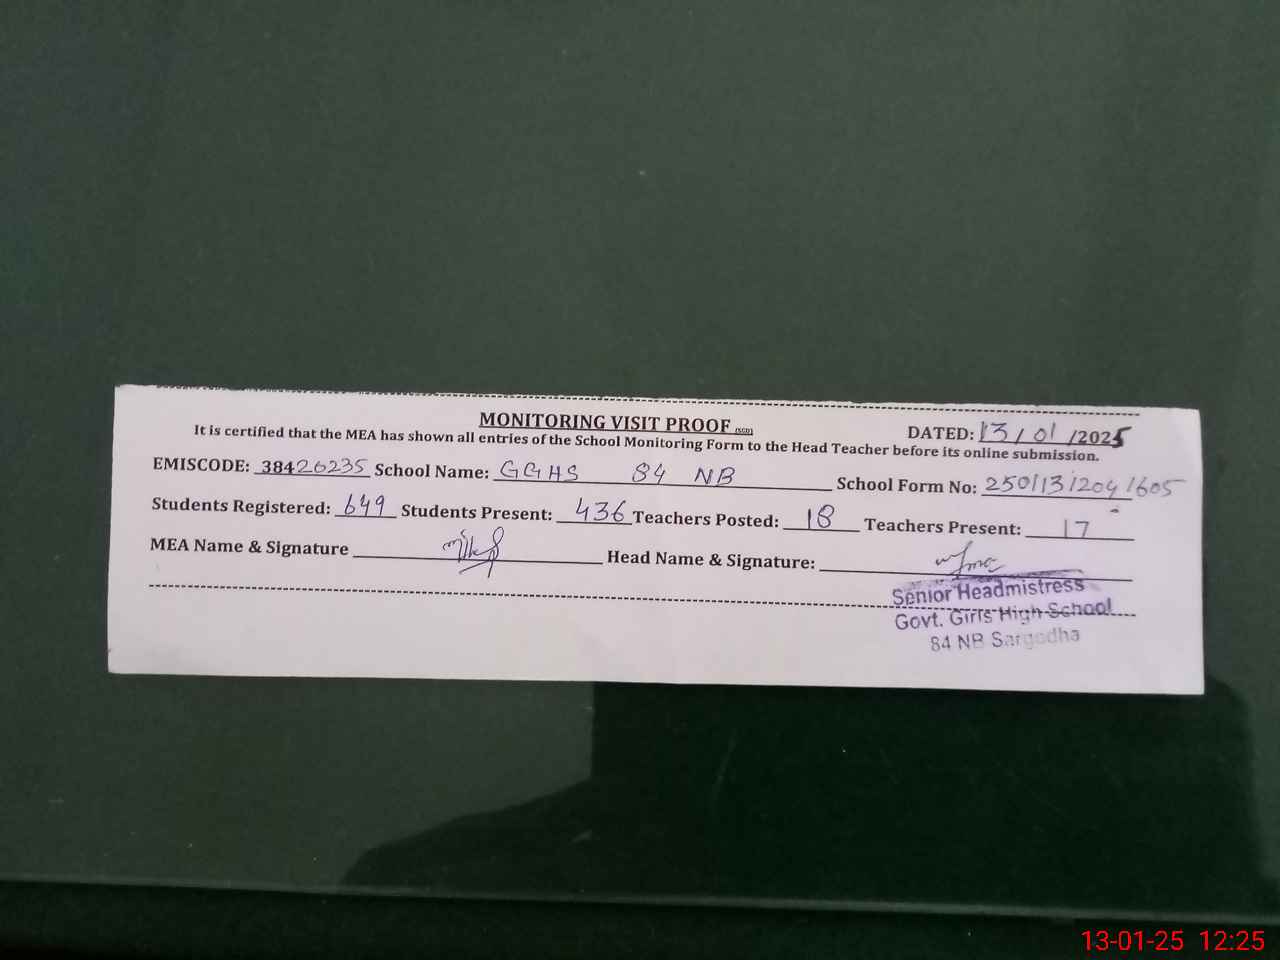 MONITORING VISIT PROOF (SGD)
DATED: 13/01/2025
It is certified that the MEA has shown all entries of the School Monitoring Form to the Head Teacher before its online submission.
EMISCODE: 38426235 School Name: GGHS 84 NB School Form No: 25011312041605
Students Registered: 649 Students Present: 436 Teachers Posted: 18 Teachers Present: 17
MEA Name & Signature Head Name & Signature:
Senior Headmistress
Govt. Girls High School
84 NB Sargodha
13-01-25 12:25